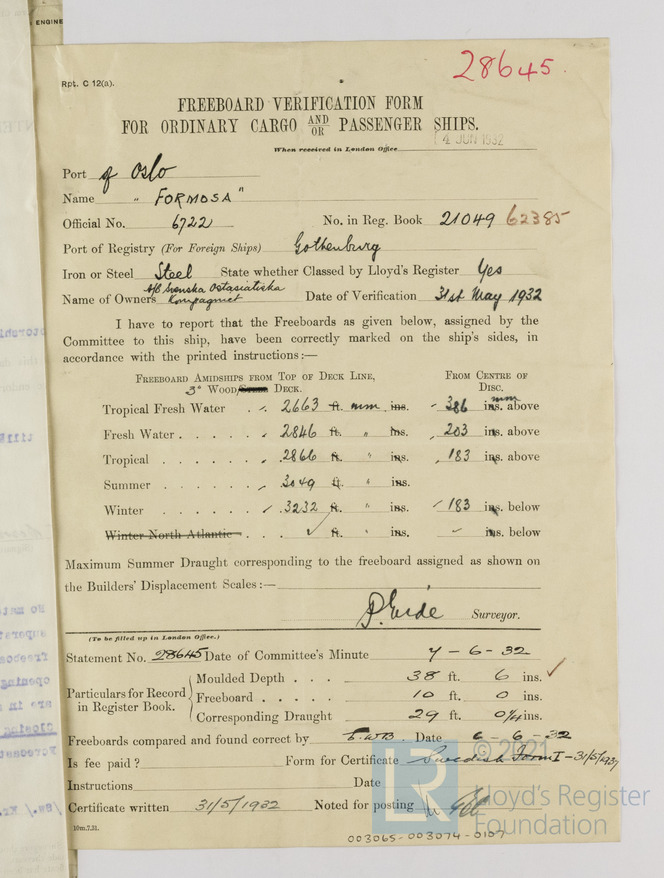 ENGINE
28645.
Rpt. C 12(a).
FREEBOARD VERIFICATION FORM
FOR ORDINARY CARGO AND/OR PASSENGER SHIPS.
When received in London Office
4 JUN 1932
Port of Oslo
Name "FORMOSA"
Official No. 6722 No. in Reg. Book 21049 62385
Port of Registry (For Foreign Ships) Gothenburg
Iron or Steel Steel State whether Classed by Lloyd's Register Yes
A/B Svenska Ostasiatiska
Name of Owners Kompagniet Date of Verification 31st May 1932
I have to report that the Freeboards as given below, assigned by the
Committee to this ship, have been correctly marked on the ship's sides, in
accordance with the printed instructions:—
FREEBOARD AMIDSHIPS FROM TOP OF DECK LINE, FROM CENTRE OF
3" WOOD DECK. DISC.
Tropical Fresh Water 2663 ft. mm ins. 386 ins. mm above
Fresh Water 2846 ft. " ins. 203 ins. above
Tropical 2866 ft. " ins. 183 ins. above
Summer 3049 ft. " ins.
Winter 3232 ft. " ins. 183 ins. below
Winter North Atlantic ft. " ins. ins. below
Maximum Summer Draught corresponding to the freeboard assigned as shown on
the Builders' Displacement Scales:—
Surveyor.
(To be filled up in London Office.)
Statement No. 28645 Date of Committee's Minute 7-6-32
Moulded Depth . . . 38 ft. 6 ins.
Particulars for Record in Register Book.
Freeboard . . . . . 10 ft. 0 ins.
Corresponding Draught 29 ft. 0¼ ins.
Freeboards compared and found correct by Date 6-6-32
Is fee paid? Form for Certificate Swedish Form I - 31/5/1937
Instructions Date
Certificate written 31/5/1932 Noted for posting
10m.7.31.
003065-003074-0107
© 2021
LR
Lloyd's Register
Foundation